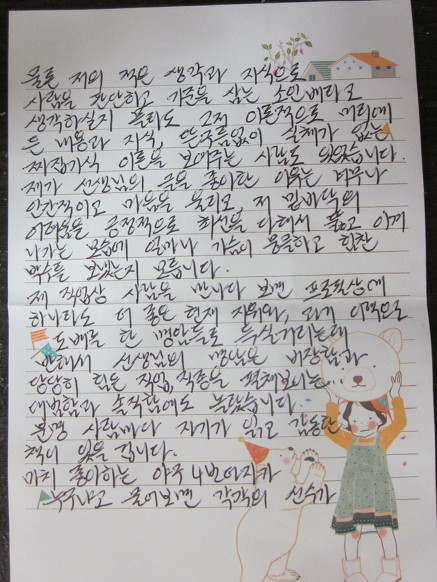 물론 저의 적은 생각과 지식으로
사람을 판단하고 기준을 삼는 소인배라고
생각하실지 몰라도 그저 이론적으로 머리에
든 내용과 지식, 실체가 없는
짜집기식 이론을 보여주는 사람도 있었습니다.
제가 선생님의 글을 좋아한 이유는 너무나
인간적이고 마음을 울리고, 저 밑바닥의
어려움을 긍정적으로 최선을 다해서 풀고 이겨
나가는 모습에 얼마나 가슴이 뭉클하고 힘찬
박수를 보냈는지 모릅니다.
제 직업상 사람을 만나다 보면 프로필상에
하나라도 더 좋은 현재 지위와, 과거 이력으로
도배를 한 명함들로 득실거리는데
반해서 선생님의 명함은 비장함과
당당히 힘든 직업, 직종을
대범함과 솔직함에도 놀랐습니다.
분명 사람마다 자기가 읽고 감동한
책이 있을 겁니다.
마치 좋아하는 야구 4번타자가
누구냐고 물어보면 각각의 선수가